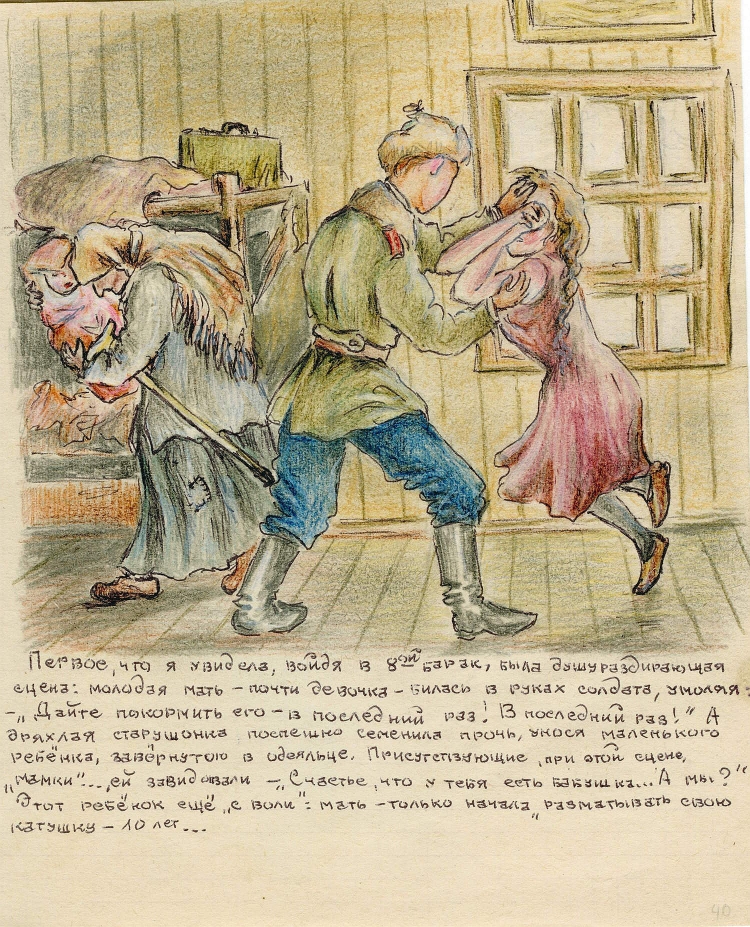 Первое, что я увидела, войдя в 8ой барак, была душураздирающая
сцена: молодая мать – почти девочка – билась в руках солдата, умоляя:
– „Дайте покормить его – в последний раз! В последний раз!" А
дряхлая старушонка поспешно семенила прочь, унося маленького
ребёнка, завёрнутого в одеяльце. Присутствующие при этой сцене,
„мамки"... ей завидовали – „Счастье, что у тебя есть бабушка... А мы?"
Этот ребёнок ещё „с воли": мать – только начала „разматывать свою
катушку – 10 лет...
40